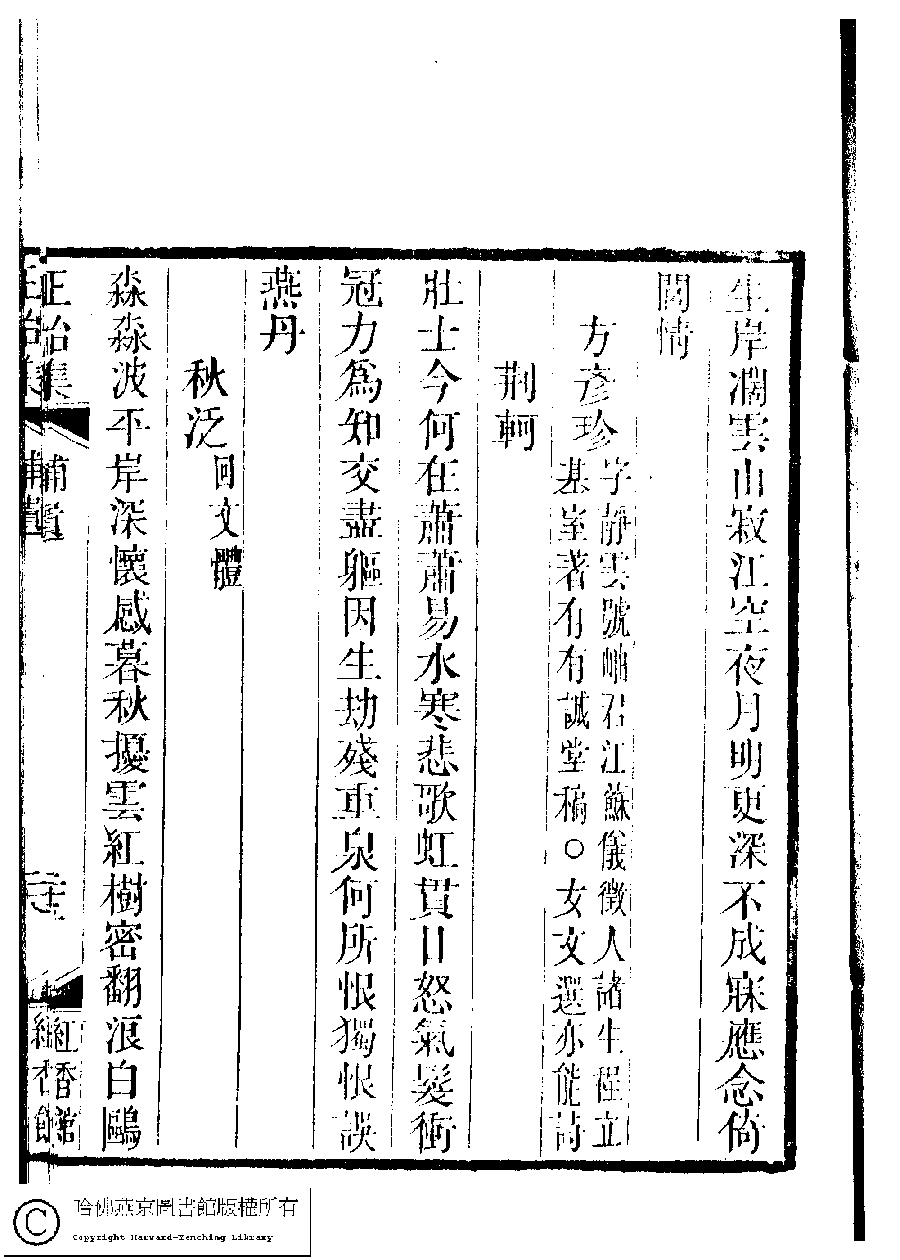 生岸濶雲山寂江空夜月明更深不成寐應念倚
閣情
方彦珍
字靜雲號岫君江蘇儀徵人諸生程立
基室著有有誠堂稿○女文選亦能詩
荆軻
壯士今何在蕭蕭易水寒悲歌虹貫日怒氣髮衝
冠力爲知交盡軀因生劫殘重泉何所恨獨恨誤
燕丹
秋泛回文體
淼淼波平岸深懷感暮秋擾雲紅樹密翻浪白鷗
正始集
補遺
紅香館
哈佛燕京圖書館版權所有
Copyright Harvard-Yenching Library